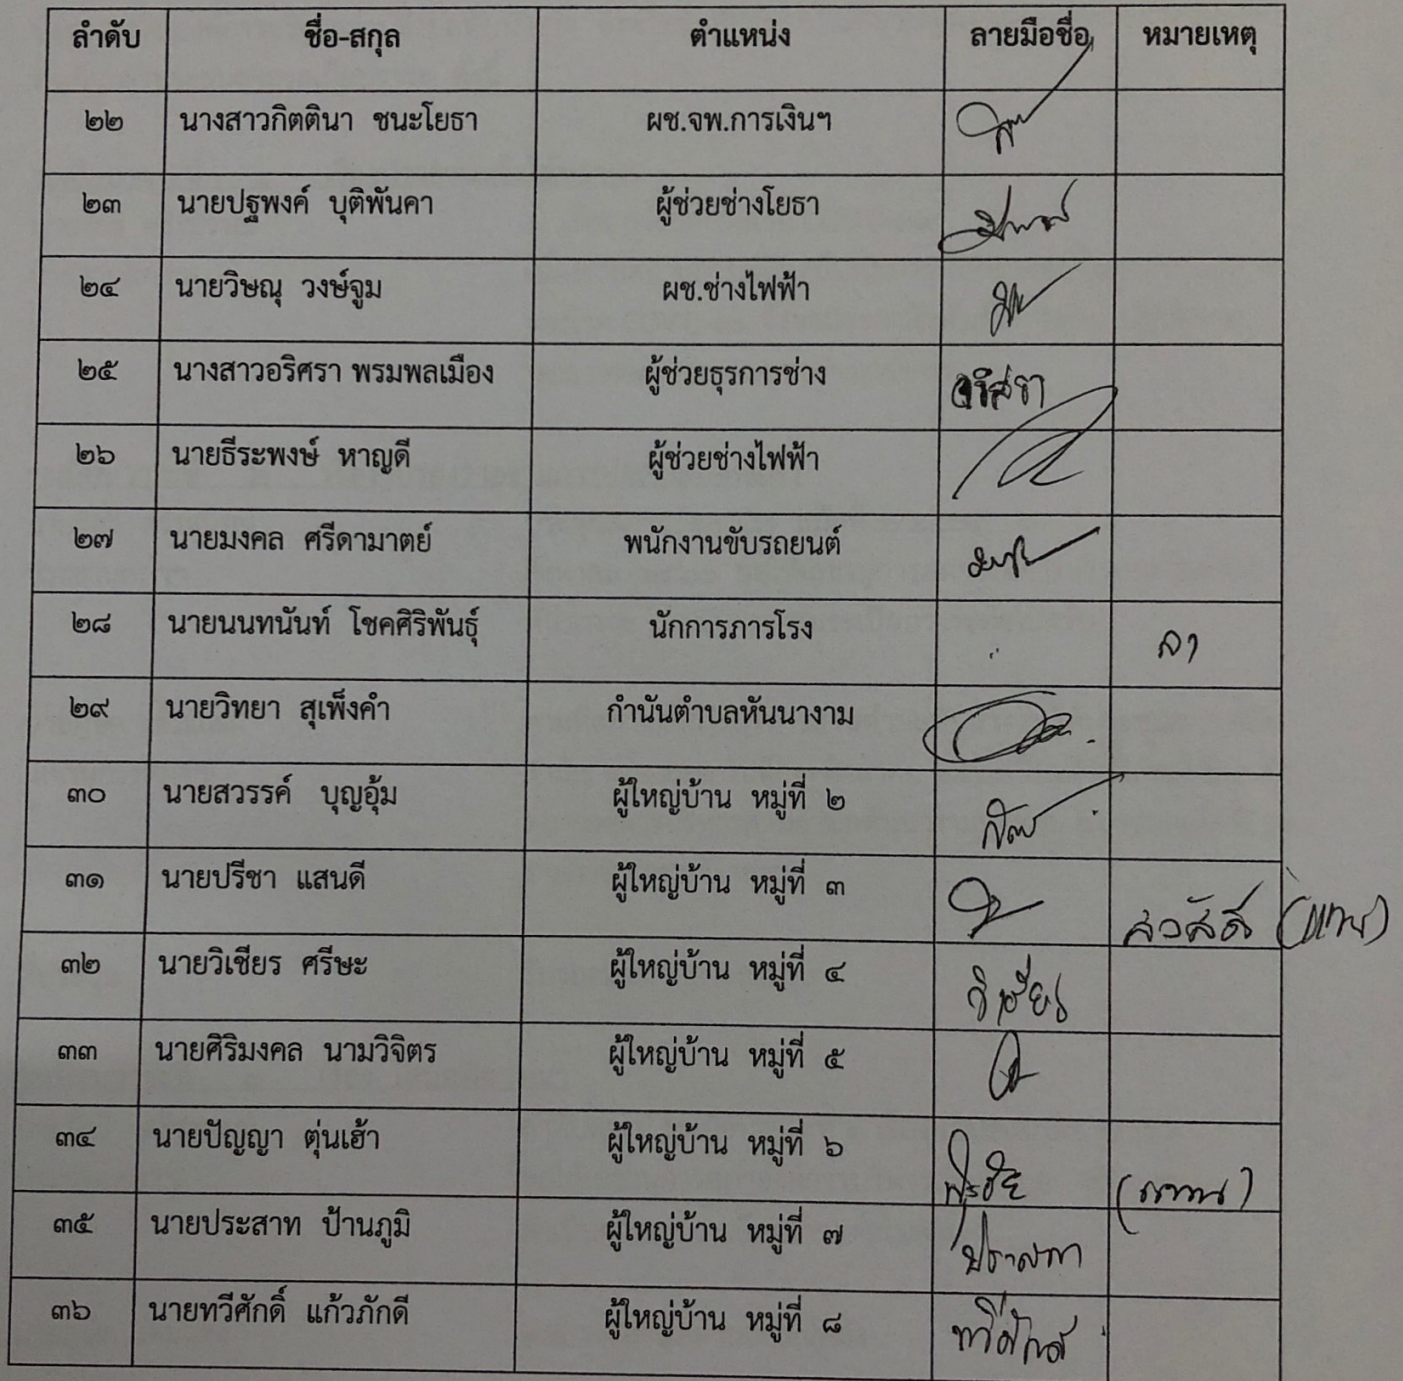 ลำดับ ชื่อ-สกุล ตำแหน่ง ลายมือชื่อ หมายเหตุ
๒๒ นางสาวกิตตินา ชนะโยธา ผช.จพ.การเงินฯ
๒๓ นายปฐพงค์ บุติพันคา ผู้ช่วยช่างโยธา
๒๔ นายวิษณุ วงษ์จูม ผช.ช่างไฟฟ้า
๒๕ นางสาวอริศรา พรมพลเมือง ผู้ช่วยธุรการช่าง อริศรา
๒๖ นายธีระพงษ์ หาญดี ผู้ช่วยช่างไฟฟ้า
๒๗ นายมงคล ศรีดามาตย์ พนักงานขับรถยนต์
๒๘ นายนนทนันท์ โชคศิริพันธุ์ นักการภารโรง ลา
๒๙ นายวิทยา สุเพ็งคำ กำนันตำบลหันนางาม
๓๐ นายสวรรค์ บุญอุ้ม ผู้ใหญ่บ้าน หมู่ที่ ๒
๓๑ นายปรีชา แสนดี ผู้ใหญ่บ้าน หมู่ที่ ๓ สวัสดิ์ (แทน)
๓๒ นายวิเชียร ศรีษะ ผู้ใหญ่บ้าน หมู่ที่ ๔ วิเชียร
๓๓ นายศิริมงคล นามวิจิตร ผู้ใหญ่บ้าน หมู่ที่ ๕
๓๔ นายปัญญา ตุ่นเฮ้า ผู้ใหญ่บ้าน หมู่ที่ ๖ (แทน)
๓๕ นายประสาท ป้านภูมิ ผู้ใหญ่บ้าน หมู่ที่ ๗
๓๖ นายทวีศักดิ์ แก้วภักดี ผู้ใหญ่บ้าน หมู่ที่ ๘ ทวีศักดิ์